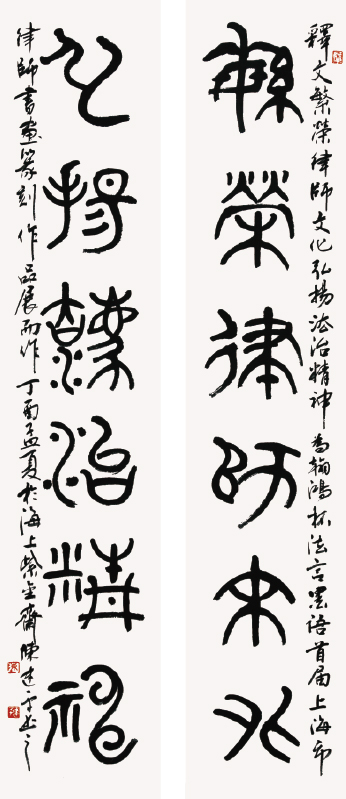 釋文繁榮律師文化弘揚法治精神為翰鴻杯法言墨語首届上海市
繁榮律師文化
弘揚灋治精神
律師書畫篆刻作品展而作丁酉孟夏於海上紫金齋陳建平書之